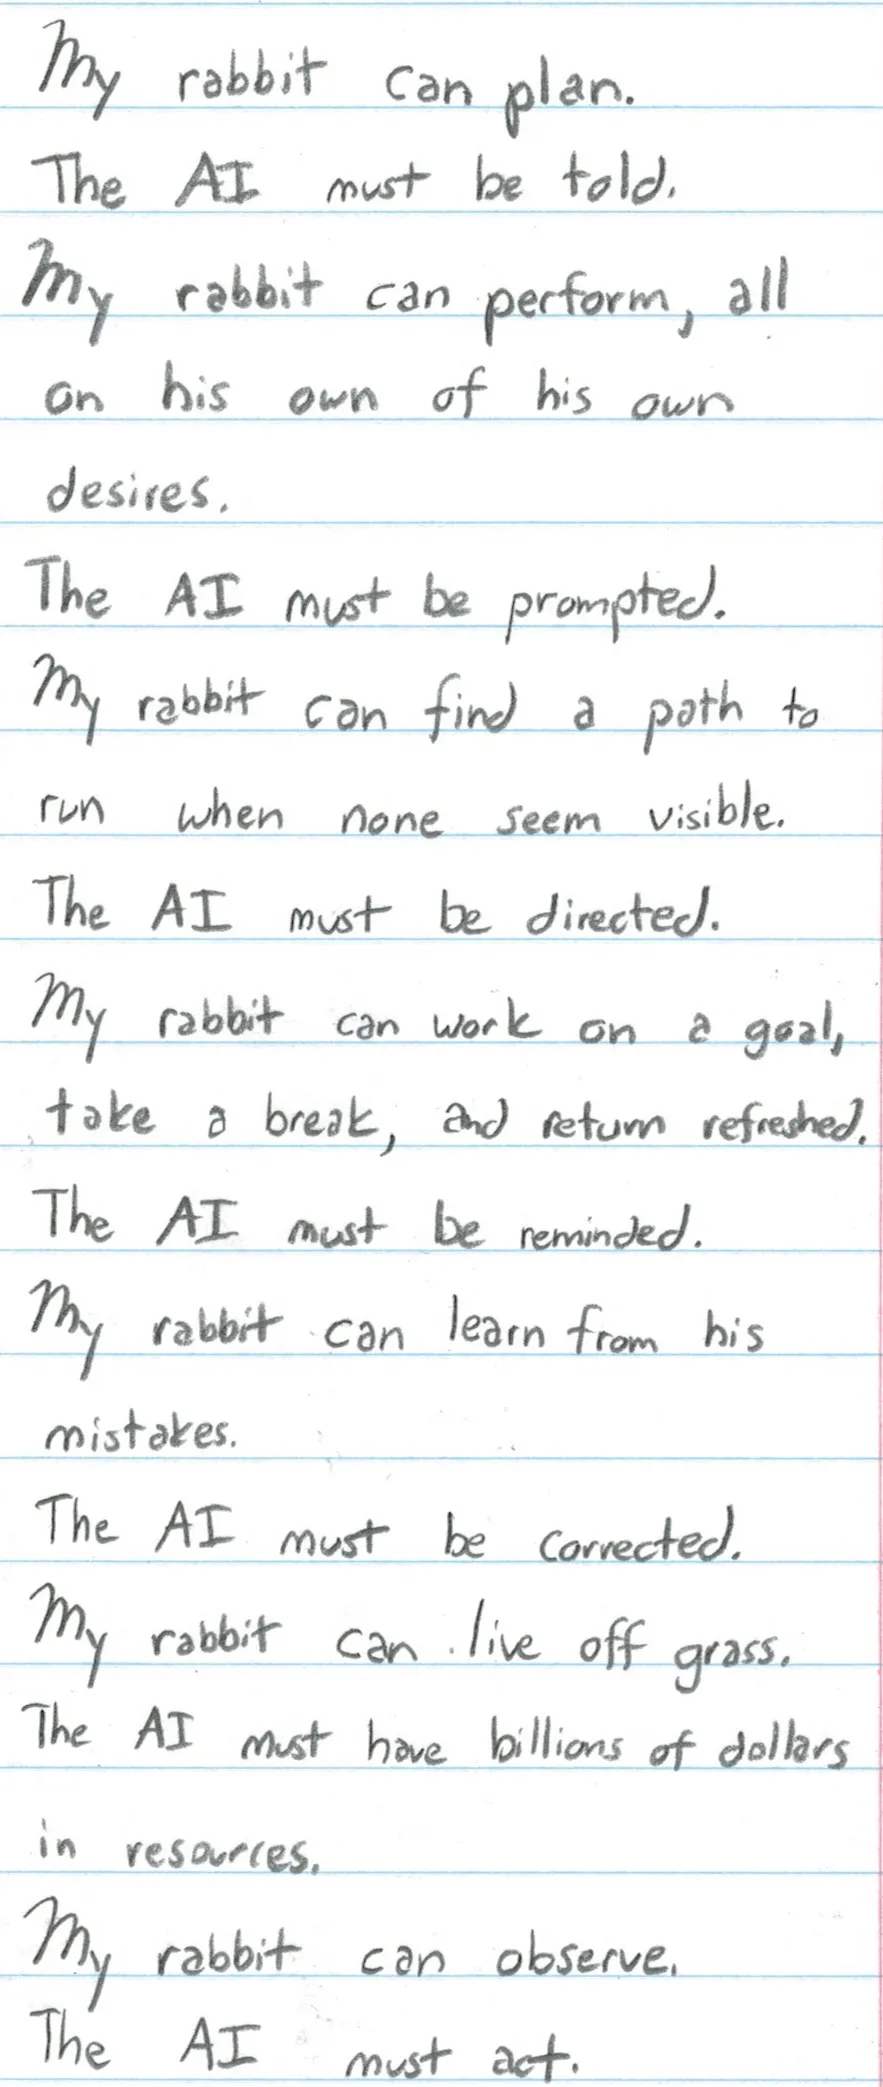 My rabbit can plan.
The AI must be told.
My rabbit can perform, all
on his own of his own
desires.
The AI must be prompted.
My rabbit can find a path to
run when none seem visible.
The AI must be directed.
My rabbit can work on a goal,
take a break, and return refreshed.
The AI must be reminded.
My rabbit can learn from his
mistakes.
The AI must be corrected.
My rabbit can live off grass.
The AI must have billions of dollars
in resources.
My rabbit can observe.
The AI must act.